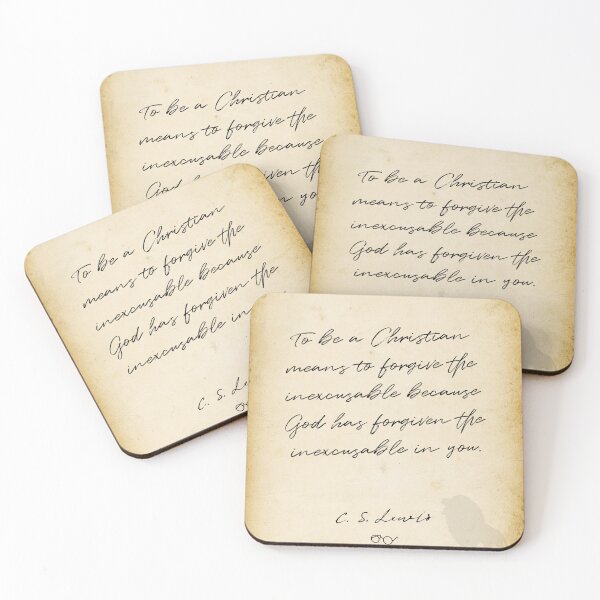 To be a Christian
means to forgive the
inexcusable because
God has forgiven the
in you
To be a Christian
means to forgive the
inexcusable because
God has forgiven the
inexcusable in you.
To be a Christian
means to forgive the
inexcusable because
God has forgiven the
inexcusable in
C. S.
To be a Christian
means to forgive the
inexcusable because
God has forgiven the
inexcusable in you.
C. S. Lewis